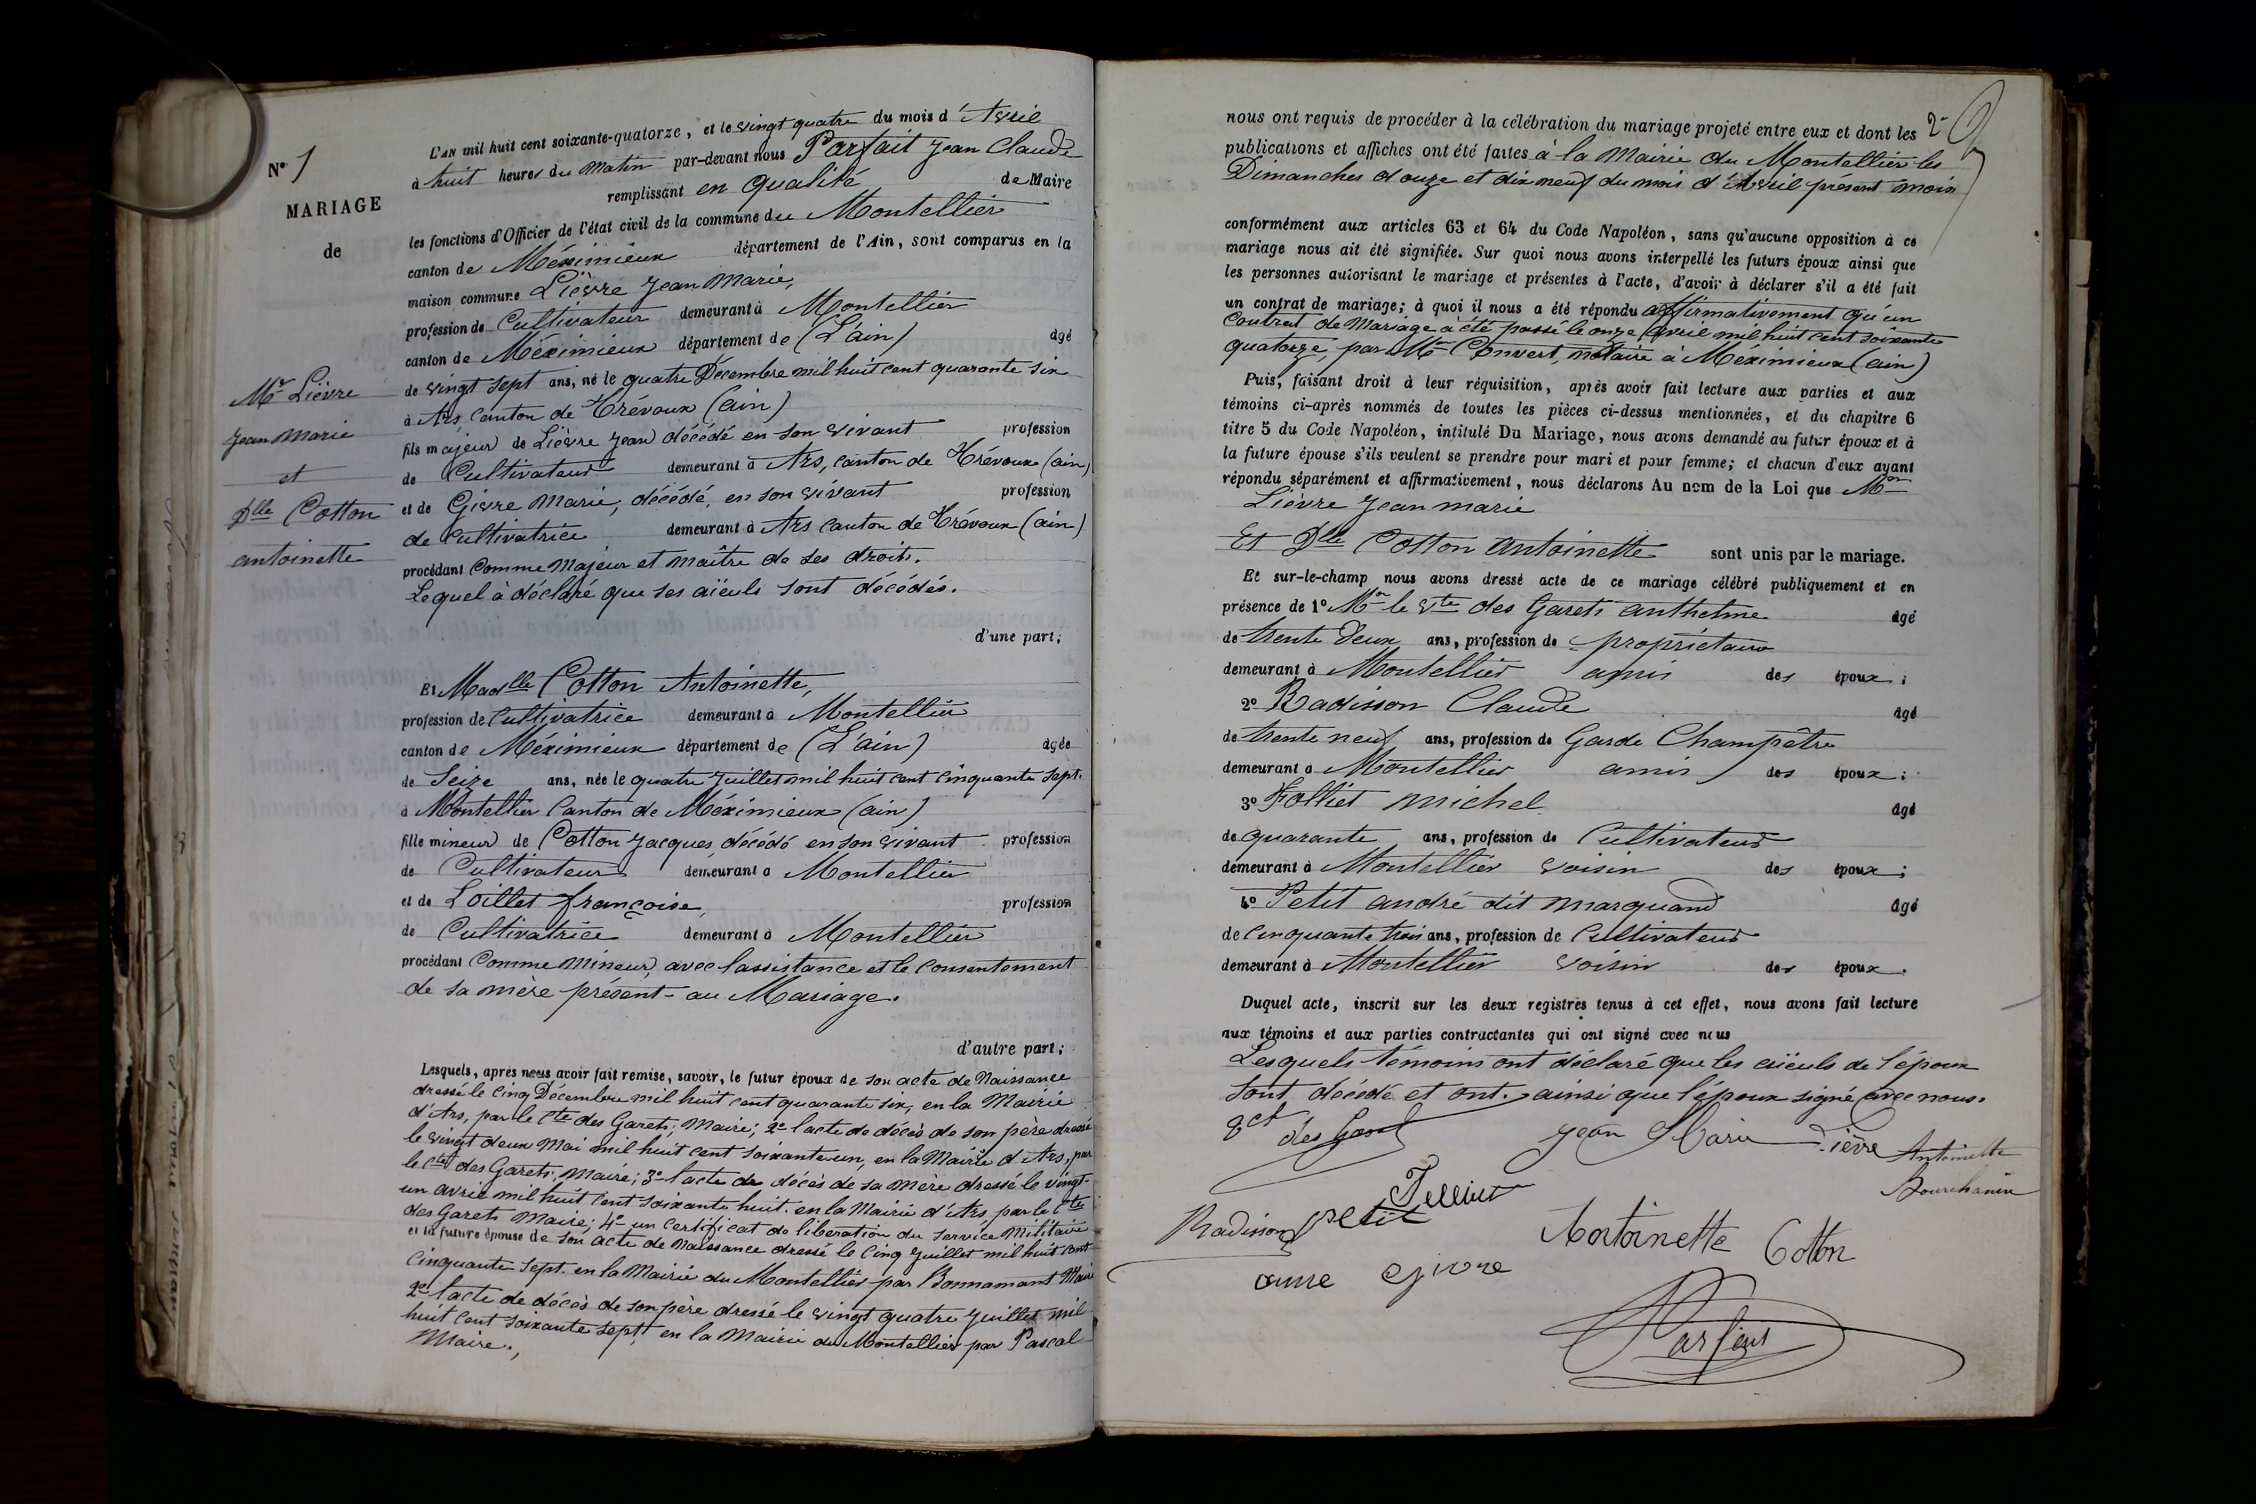 N° 1
MARIAGE
de
Mr Lièvre
Jean Marie
et
Dlle Cotton
antoinette
L'AN mil huit cent soixante-quatorze, et le vingt quatre du mois d'Avril
à huit heures du Matin par-devant nous Parfait Jean Claude
remplissant en qualité de Maire
les fonctions d'Officier de l'état civil de la commune du Montellier
canton de Méximieux département de l'Ain, sont comparus en la
maison commune Lièvre Jean Marie,
profession de Cultivateur demeurant à Montellier
canton de Méximieux département de (L'ain) âgé
de vingt sept ans, né le quatre Décembre mil huit cent quarante six
à Ars, canton de Trévoux (ain)
fils majeur de Lièvre Jean décédé en son vivant profession
de Cultivateur demeurant à Ars, canton de Trévoux (ain)
et de Givre Marie, décédé, en son vivant profession
de Cultivatrice demeurant à Ars canton de Trévoux (ain)
procédant Comme Majeur et maître de ses droits.
Lequel à déclaré que ses aïeuls sont décédés.
d'une part;
Et Madlle Cotton Antoinette,
profession de Cultivatrice demeurant à Montellier
canton de Méximieux département de (L'ain) âgée
de Seize ans, née le quatre Juillet mil huit cent Cinquante Sept.
à Montellier Canton de Méximieux (ain)
fille mineur de Cotton Jacques, décédé en son vivant profession
de Cultivateur demeurant à Montellier
et de Loillet françoise, profession
de Cultivatrice demeurant à Montellier
procédant Comme Mineur, avec l'assistance et le Consentement
de sa mère présent au Mariage.
d'autre part;
Lesquels, après nous avoir fait remise, savoir, le futur époux de son acte de Naissance
dressé le Cinq Décembre mil huit cent quarante six, en la Mairie
d'Ars, par le Cte des Garets, Maire; 2e l'acte de décès de son père dressé
le vingt deux Mai mil huit cent soixante un, en la Mairie d'Ars, par
le Cte des Garets, Maire; 3e l'acte de décès de sa mère dressé le vingt-
un avril mil huit cent soixante huit. en la Mairie d'Ars, par le Cte
des Garets Maire; 4e un Certificat de libération du service Militaire
et la future épouse de son acte de Naissance dressé le Cinq Juillet mil huit cent
Cinquante sept. en la Mairie du Montellier par Bonnamant Maire
2e l'acte de décès de son père dressé le vingt quatre Juillet mil
huit cent soixante sept, en la Mairie du Montellier par Pascal
Maire.,
2e
nous ont requis de procéder à la célébration du mariage projeté entre eux et dont les
publications et affiches ont été faites à la Mairie du Montellier les
Dimanches douze et dix neuf du mois d'Avril présent mois
conformément aux articles 63 et 64 du Code Napoléon, sans qu'aucune opposition à ce
mariage nous ait été signifiée. Sur quoi nous avons interpellé les futurs époux ainsi que
les personnes autorisant le mariage et présentes à l'acte, d'avoir à déclarer s'il a été fait
un contrat de mariage; à quoi il nous a été répondu affirmativement qu'un
Contrat de Mariage à été passé le onze avril mil huit cent soixante
quatorze par Me Convert, notaire à Méximieux (ain)
Puis, faisant droit à leur réquisition, après avoir fait lecture aux parties et aux
témoins ci-après nommés de toutes les pièces ci-dessus mentionnées, et du chapitre 6
titre 5 du Code Napoléon, intitulé Du Mariage, nous avons demandé au futur époux et à
la future épouse s'ils veulent se prendre pour mari et pour femme; et chacun d'eux ayant
répondu séparément et affirmativement, nous déclarons Au nom de la Loi que Mr
Lièvre Jean marie
Et Dlle Cotton Antoinette sont unis par le mariage.
Et sur-le-champ nous avons dressé acte de ce mariage célébré publiquement et en
présence de 1° Mr le Vte des Garets anthelme âgé
de trente deux ans, profession de propriétaire
demeurant à Montellier amis des époux;
2° Radisson Claude âgé
de trente neuf ans, profession de Garde Champêtre
demeurant à Montellier amis des époux;
3° Folliet Michel âgé
de quarante ans, profession de Cultivateur
demeurant à Montellier voisin des époux;
4° Petit andré dit marquand âgé
de Cinquante trois ans, profession de Cultivateur
demeurant à Montellier voisin des époux.
Duquel acte, inscrit sur les deux registres tenus à cet effet, nous avons fait lecture
aux témoins et aux parties contractantes qui ont signé avec nous
Lesquels témoins ont déclaré que les aïeuls de l'époux
sont décédé et ont. ainsi que l'époux signé avec nous.
des Garets Jean Marie Lièvre Antoinette
Bourchanin
Radisson petit Folliet
Antoinette Cotton
anne givre
Parfait